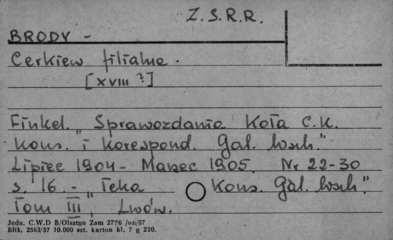 Z.S.R.R.
BRODY -
Cerkiew filialna.
[XVIII ?]
Finkel. "Sprawozdanie Koła C.K.
Kons. i Korespond. Gal. Wsch."
Lipiec 1904 - Marzec 1905. Nr 22-30
s. 16. - "Teka Kons. Gal. Wsch."
Tom III, Lwów.
Jedn. C.W.D B/Olsztyn Zam 2776 /on/57
Bltk. 2563/57 10.000 szt. karton kl. 7 g 220.